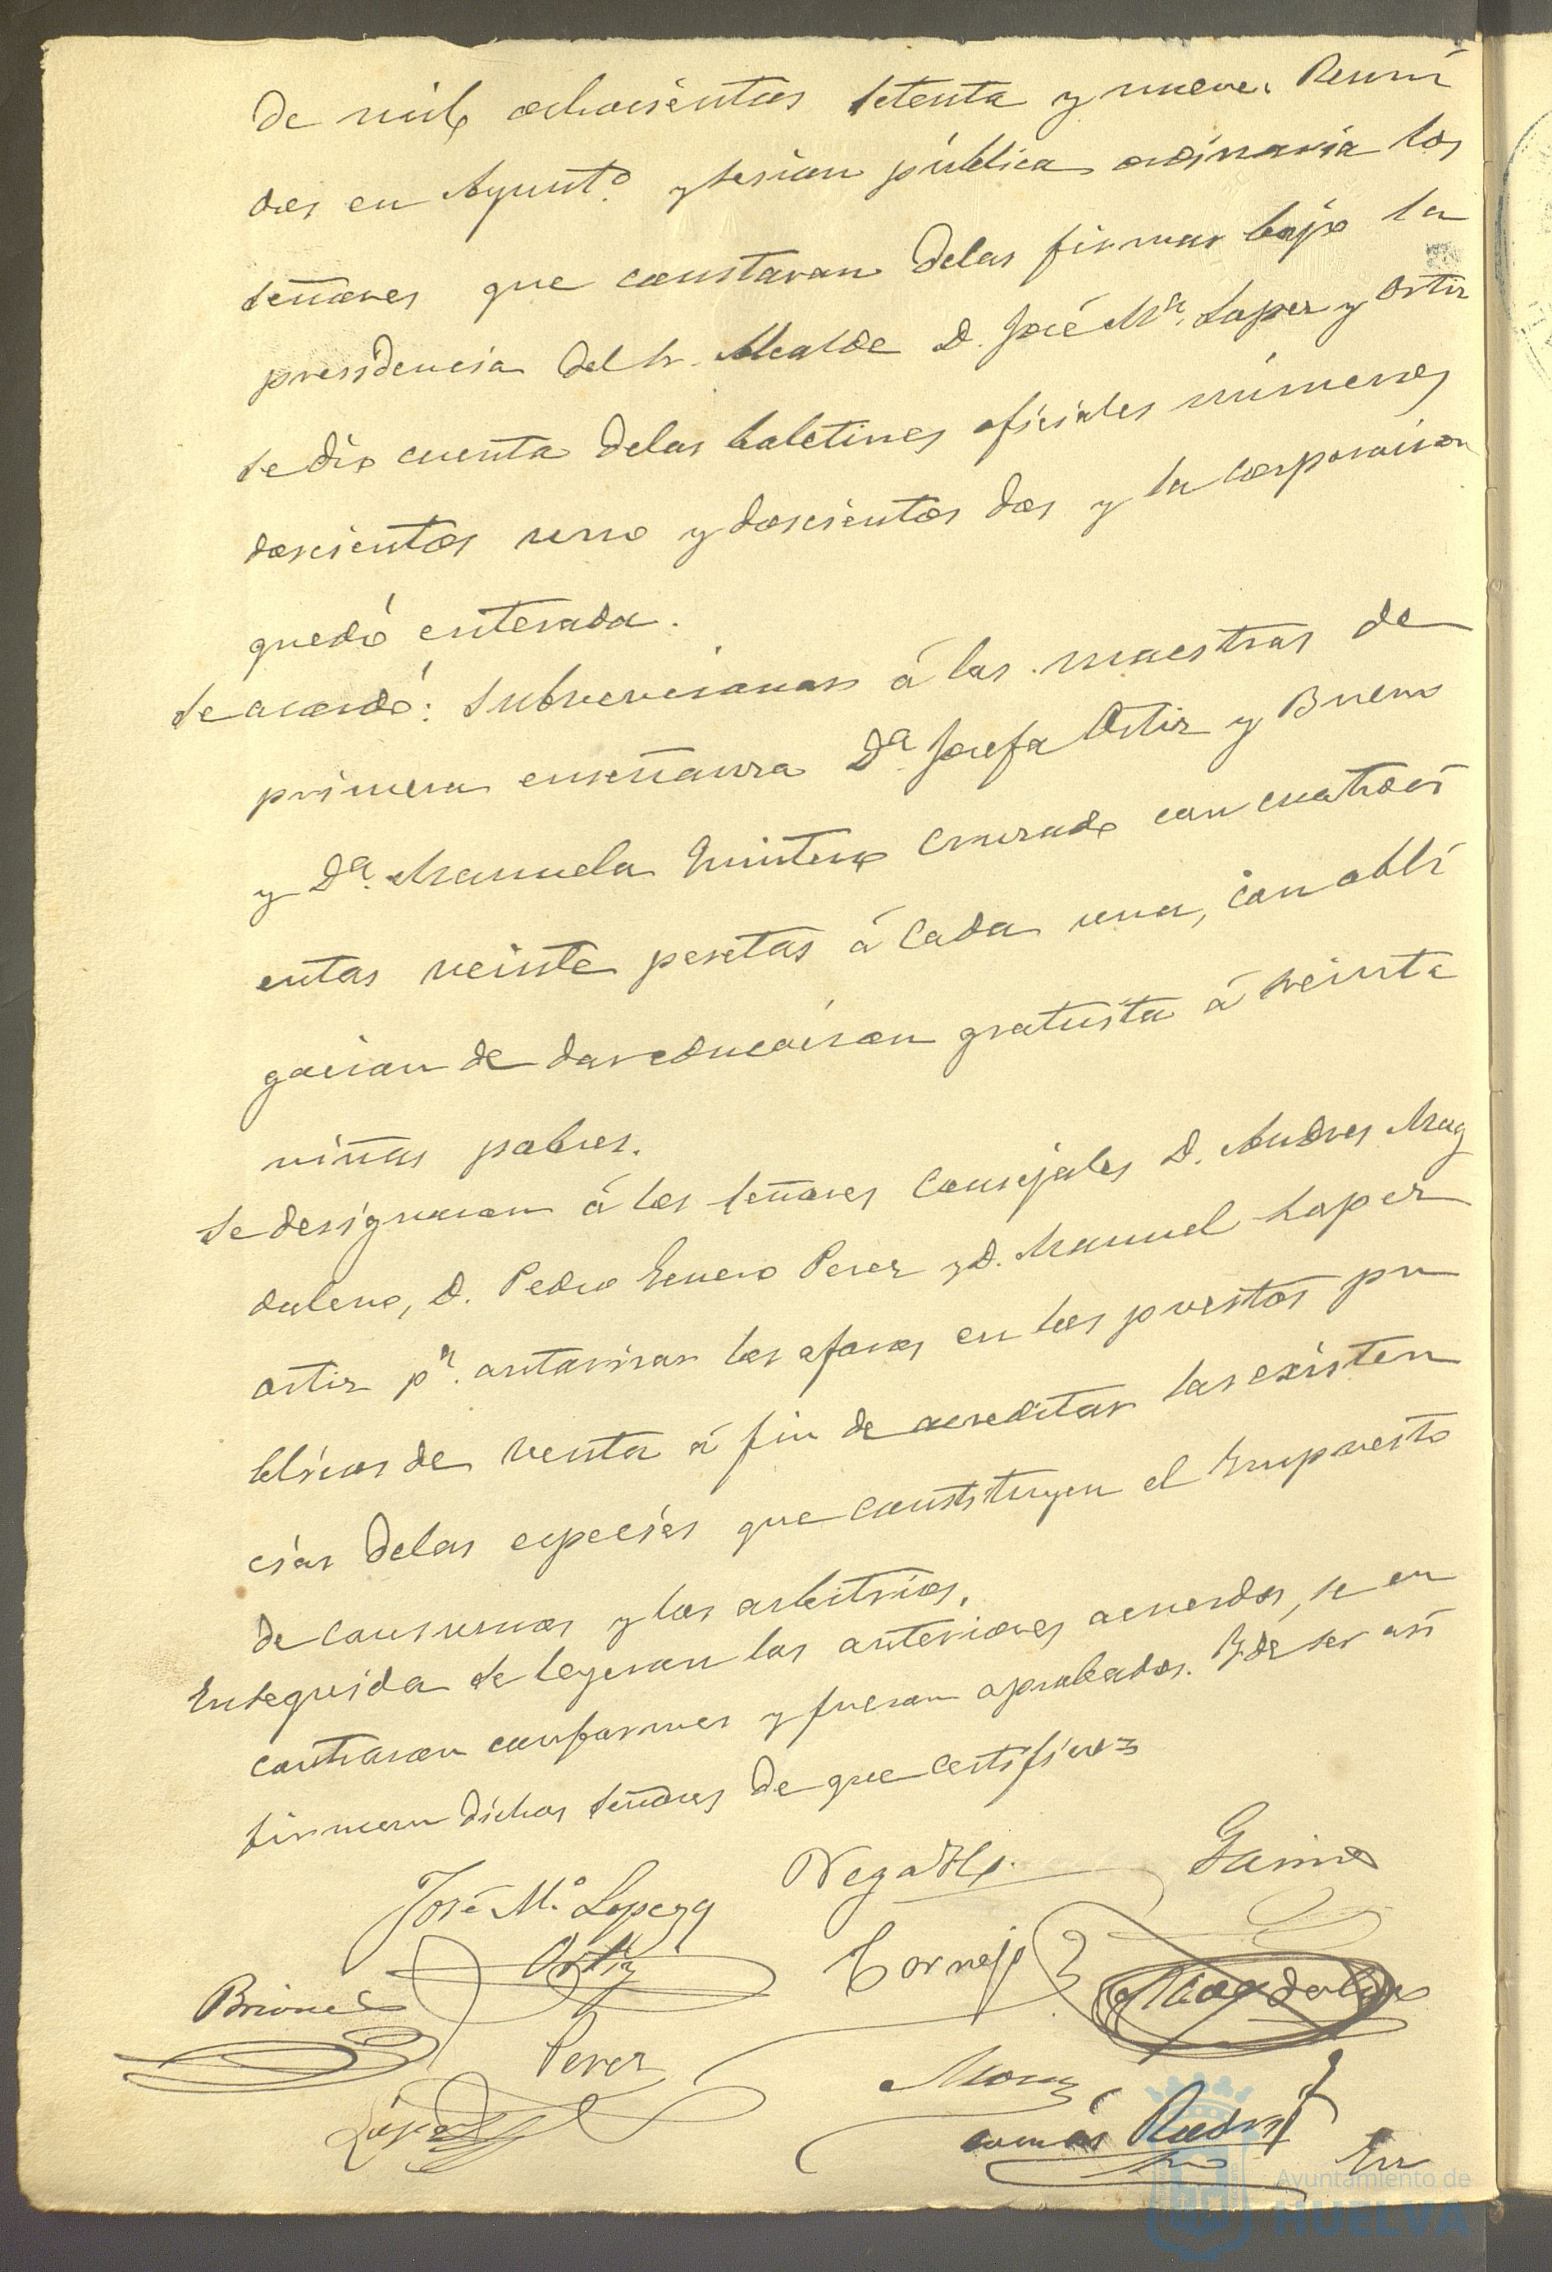 de mil ochocientos setenta y nueve. Reuni
dos en Ayunt.º y sesion pública ordinaria los
señores que constaran delas firmas bajo la
presidencia del Sr. Alcalde D. José Mª. Lopez y Ortiz
se dio cuenta delos boletines oficiales números
doscientos uno y doscientos dos y la corporacion
quedó enterada.
Se acordó: subvencionar á las maestras de
primera enseñanza Dª. Josefa Ortiz y Bueno
y Dª. Manuela Quintero Cruzado con cuatroci
entas veinte pesetas á cada una, con obli
gacion de dar educacion gratuita á treinta
niñas pobres.
Se designaron á los señores Concejales D. Andres Mag
daleno, D. Pedro Genero Perez y D. Manuel Lopez
Ortiz pª. autorizar los aforos en los puestos pu
blicos de venta á fin de acreditar las existen
cias delas especies que constituyen el Impuesto
de consumos y los arbitrios.
Enseguida se leyeron los anteriores acuerdos, se en
contraron conformes y fueron aprobados. Y de ser asi
firman dichos señores de que certifico
José M.ª Lopez y
Ortiz
Garrido
Cornejo
Briones
Magdaleno
Perez
Lopez
En
Ayuntamiento de
HUELVA